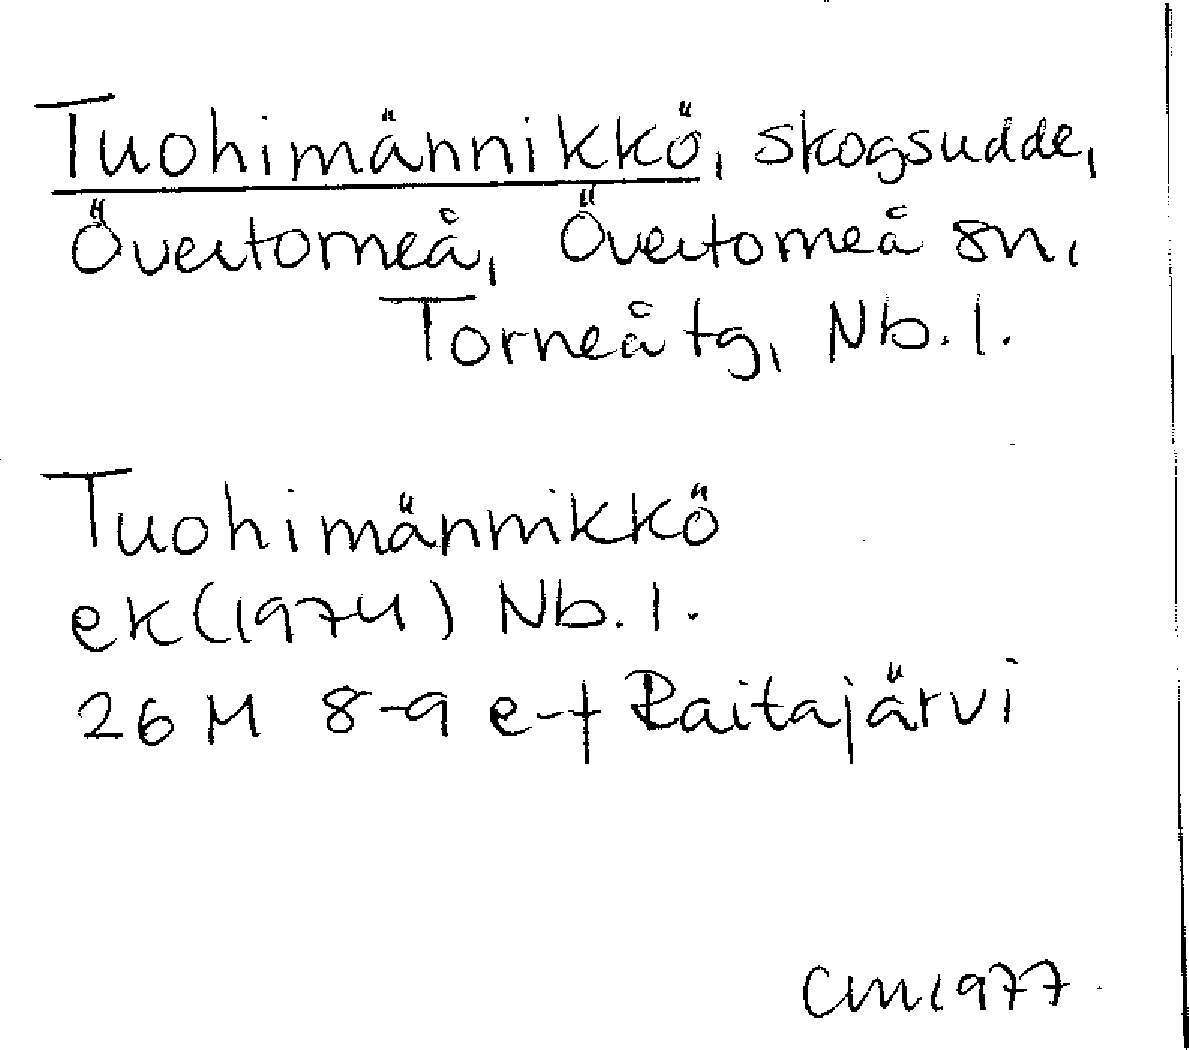 Tuohimännikkö, skogsudde,
Övertorneå, Övertorneå sn,
Torneå tg, Nb. l.
Tuohimännikkö
ek (1974) Nb. l.
26 M 8-9 e-f Raitajärvi
CM 1977.